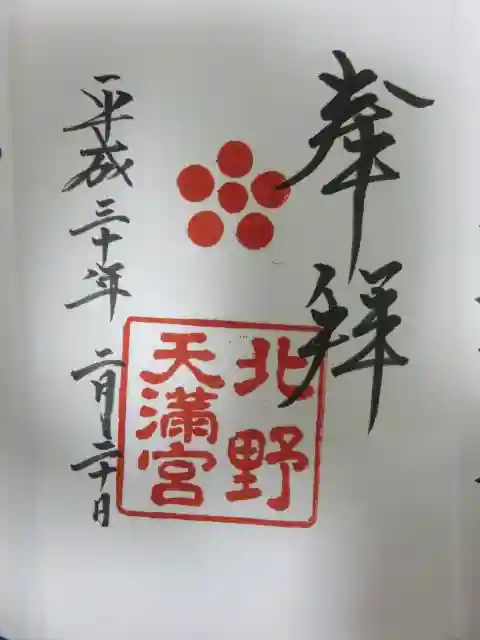 奉拝
北野
天満宮
平成三十年二月二十日